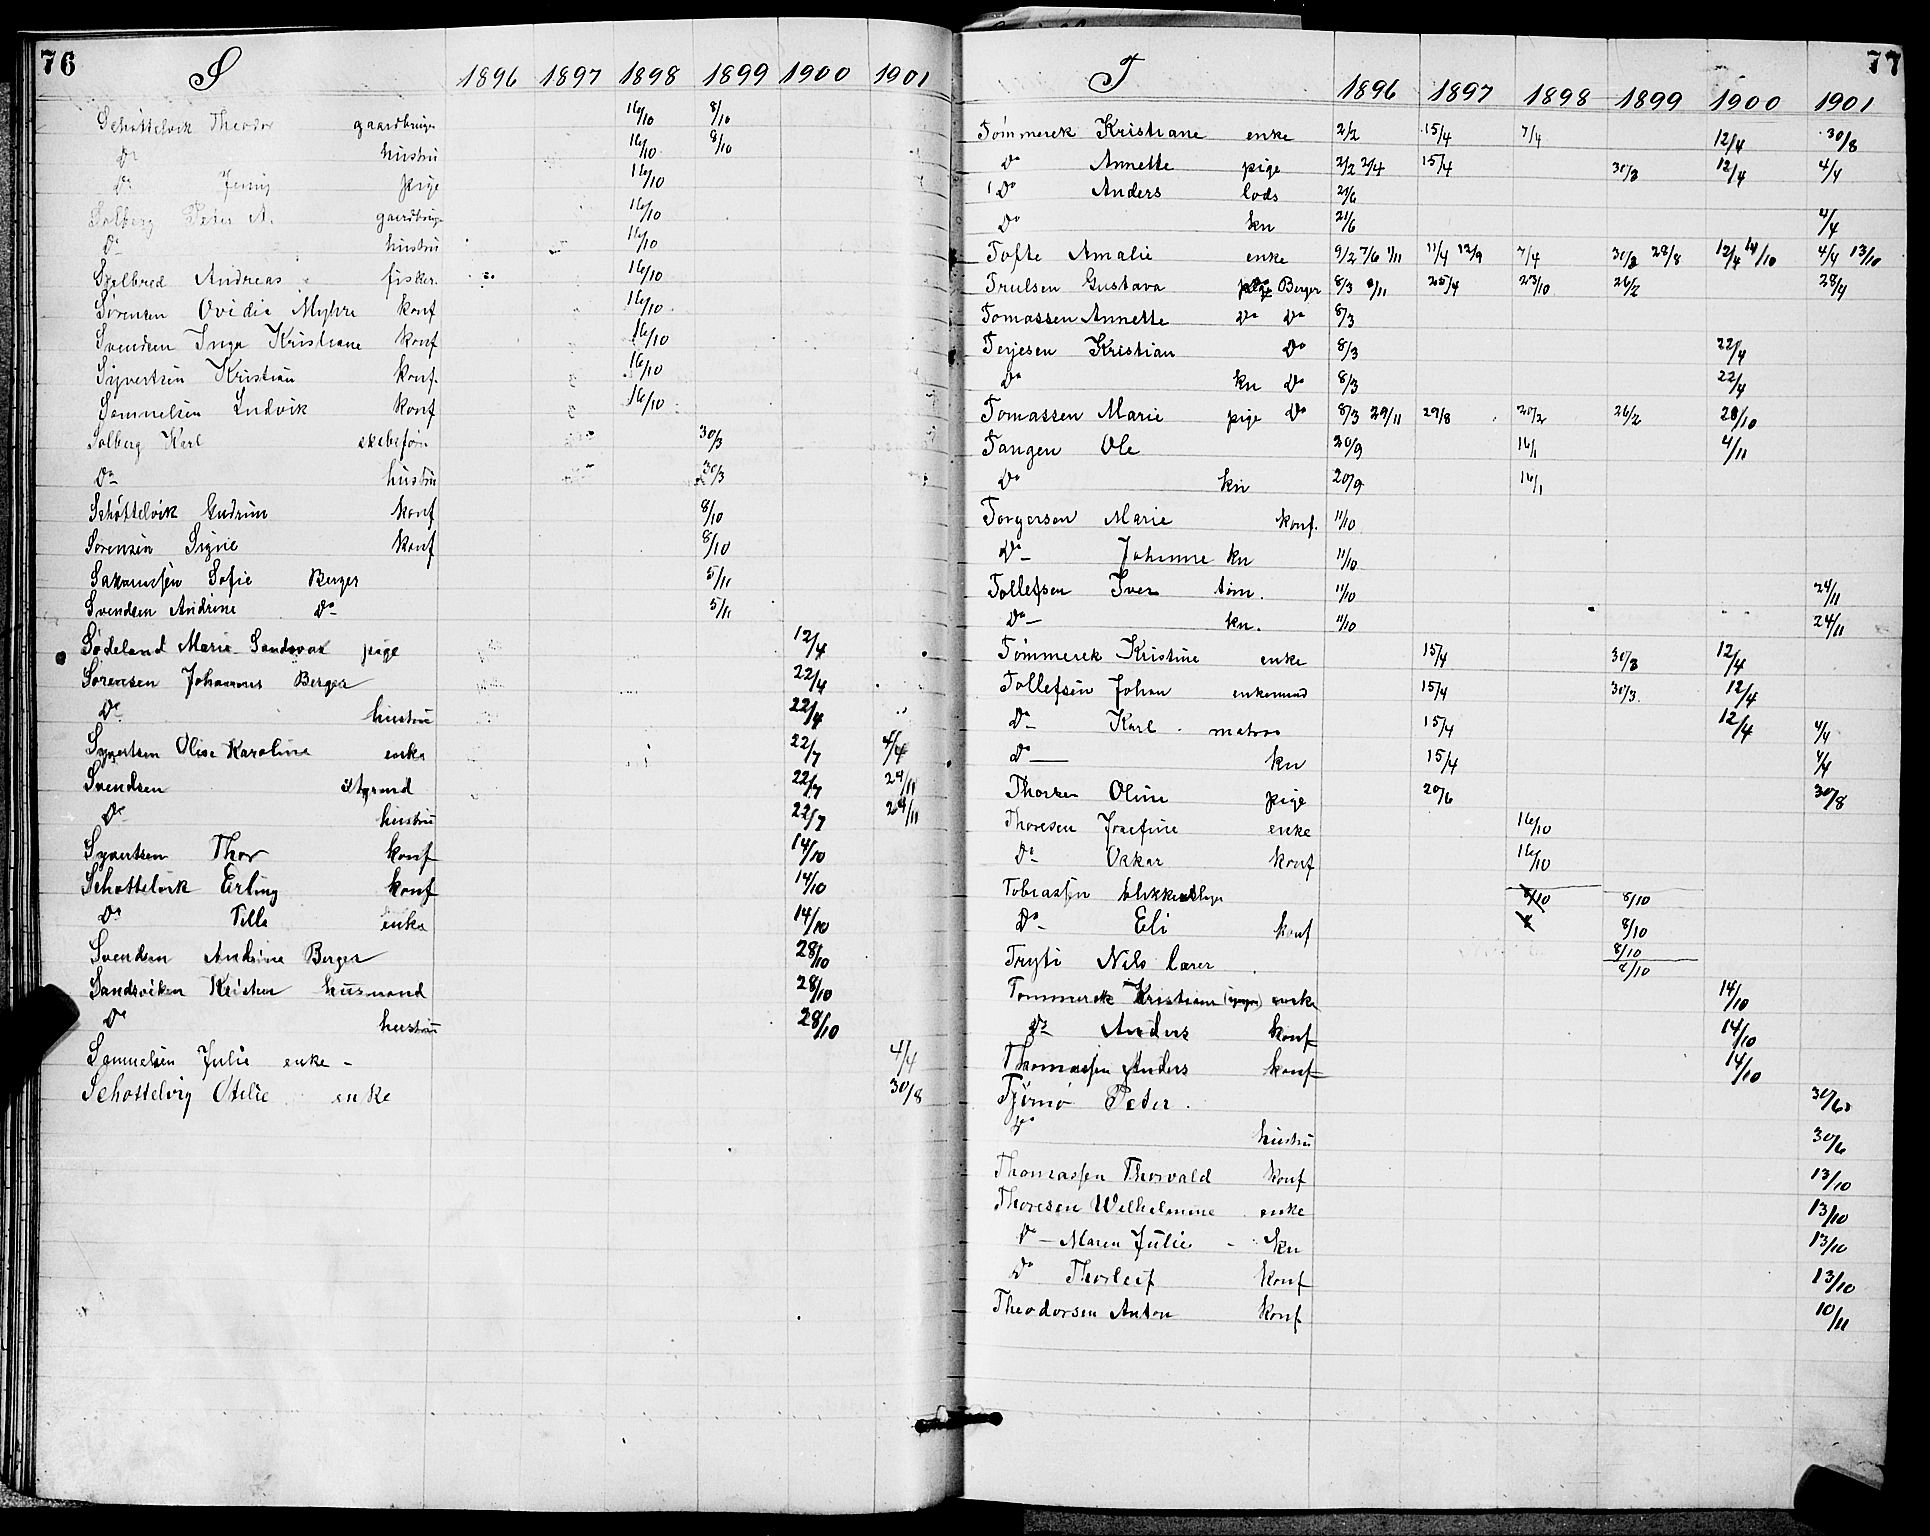 76
S 1896 1897 1898 1899 1900 1901
Schøttelvik Theodor gaardbruger 16/10 8/10
Do hustru 16/10 8/10
Do Jenny pige 16/10
Solberg Peter A. gaardbruger 16/10
Do hustru 16/10
Andreas fisker 16/10
Sørensen Ovidie Myhre konf 16/10
Svendsen Inga Kristiane konf 16/10
Syvertsen Kristian konf. 16/10
Sammelsen Ludvik konf 16/10
Solberg Karl 30/3
Do hustru 30/3
Schøttelvik Gudrun konf 8/10
Sørensen Signe konf 8/10
Sakariassen Sofie Berger 5/11
Svendsen Andrine Do 5/11
Sødeland Marie Sandsvar pige 12/4
Sørensen Johannes Berger 22/4
Do hustru 22/4
Syvertsen Olise Karoline enke 22/7 4/4
Svendsen 22/7 24/11
Do hustru 22/7 24/11
Syvertsen Thor konf 14/10
Schøttelvik Erling konf 14/10
Do Tilla enke 14/10
Svendsen Andrine Berger 28/10
Sandsviken Kristen husmand 28/10
Do hustru 28/10
Samuelsen Julie enke - 4/4
Schøttelvig Otelie enke 30/8
77
T 1896 1897 1898 1899 1900 1901
Tømmerek Kristiane enke 2/2 15/4 7/4 12/4 30/8
Do Annette pige 2/2 2/4 15/4 30/3 12/4 4/4
Do Anders lods 21/6
Do kn 21/6 4/4
Tofte Amalie enke 9/2 7/6 1/11 11/4 12/9 7/4 30/3 28/8 12/4 14/10 4/4 13/10
Trulsen Gustava pige Berger 8/3 8/11 25/4 23/10 26/2 28/4
Tomassen Annette Do Do 8/3
Terjesen Kristian Do 8/3 22/4
Do kn Do 8/3 22/4
Tomassen Marie pige Do 8/3 29/11 29/8 20/2 26/2 28/10
Tangen Ole 20/9 16/1 4/11
Do kn 20/9 16/1
Torgersen Marie konf. 11/10
Do Johanne kn 11/10
Tollefsen Iver tøm. 11/10 24/11
Do kn. 11/10 24/11
Tømmerek Kristine enke 15/4 30/3 12/4
Tollefsen Johan enkemand 15/4 30/3. 12/4
Do Karl matros 15/4 12/4 4/4
Do kn 15/4 4/4
Thorsen Oline pige 20/6 30/8
Thoresen Josefine enke 16/10
Do Oskar konf 16/10
Tobiassen 8/10 8/10
Do Eli konf 8/10
Tryti Nils lærer 8/10 8/10
Tømmerek Kristiane enke 14/10
Do Anders konf 14/10
Thomassen Anders konf 14/10
Tjømø Peter. 30/6
Do hustru 30/6
Thomassen Thorvald konf 13/10
Thoresen Wilhelmine enke 13/10
Do - Maren Julie - kn 13/10
Do Thorleif konf 13/10
Theodorsen Anton konf 10/11